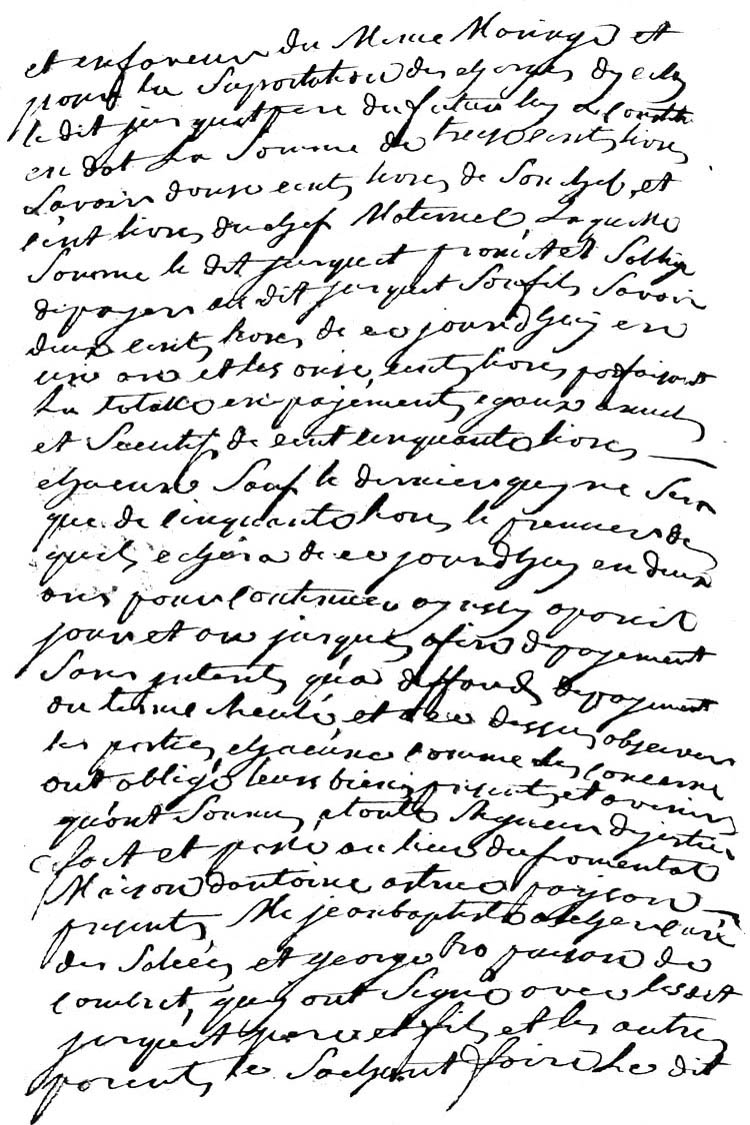 et enfaveur du Meme Mariage et
pour la Suportation des charges dyceluy
le dit jurquet pere du futur luy a Constitué
en dot La Somme de treize cents livres
Savoir douse cents livres de Son chef, et
Cent livres du chef Maternel, Laquelle
Somme le dit jurquet promet et Soblige
depayer au dit jurquet Son fils Savoir
deux cents livres de ce jourd'huy en
un an et les onse cents livres parfaisant
La totalle en payéments egaux anuels
et de cent cinquante livres
chacun Sauf le dernier quy ne Sera
que de Cinquante livres le premier des
quels echéra de ce jourd'huy en deux
ans pour Continuer aynsy apareil
jour et an jusques afin depayement
Sans interets qu'a deffaud depayement
du terme et a ce dessus observer
les parties chacune comme les concerne
ont obligé leurs biens presents et avenir
qu'ont Soumis atoutes Rigueurs de justice
fait et passé au lieu du fromental
Maison dantoine astruc paysan
presents Me jean baptiste curé
des et george paisan de
Combret, quy ont Signé avec lesdit
jurquet pere et fils et les autres
parents le Sachant faire Le dit